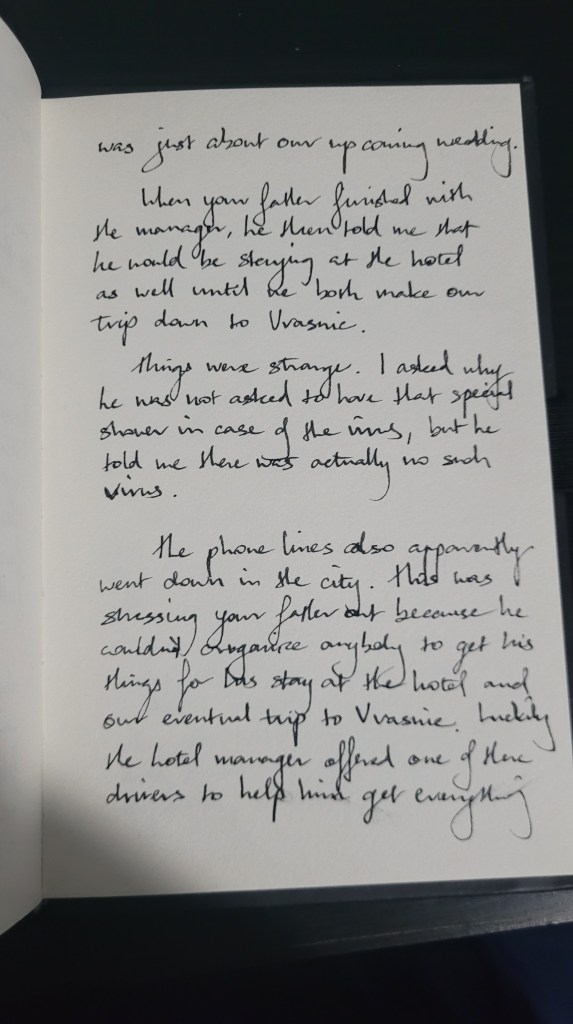 was just about our upcoming wedding.
When your father finished with
the manager, he then told me that
he would be staying at the hotel
as well until we both make our
trip down to Vrasnic.
Things were strange. I asked why
he was not asked to have that special
shower in case of the virus, but he
told me there was actually no such
virus.
The phone lines also apparently
went down in the city. This was
stressing your father out because he
couldn't organize anybody to get his
things for his stay at the hotel and
our eventual trip to Vrasnic. Luckily
the hotel manager offered one of there
drivers to help him get everything